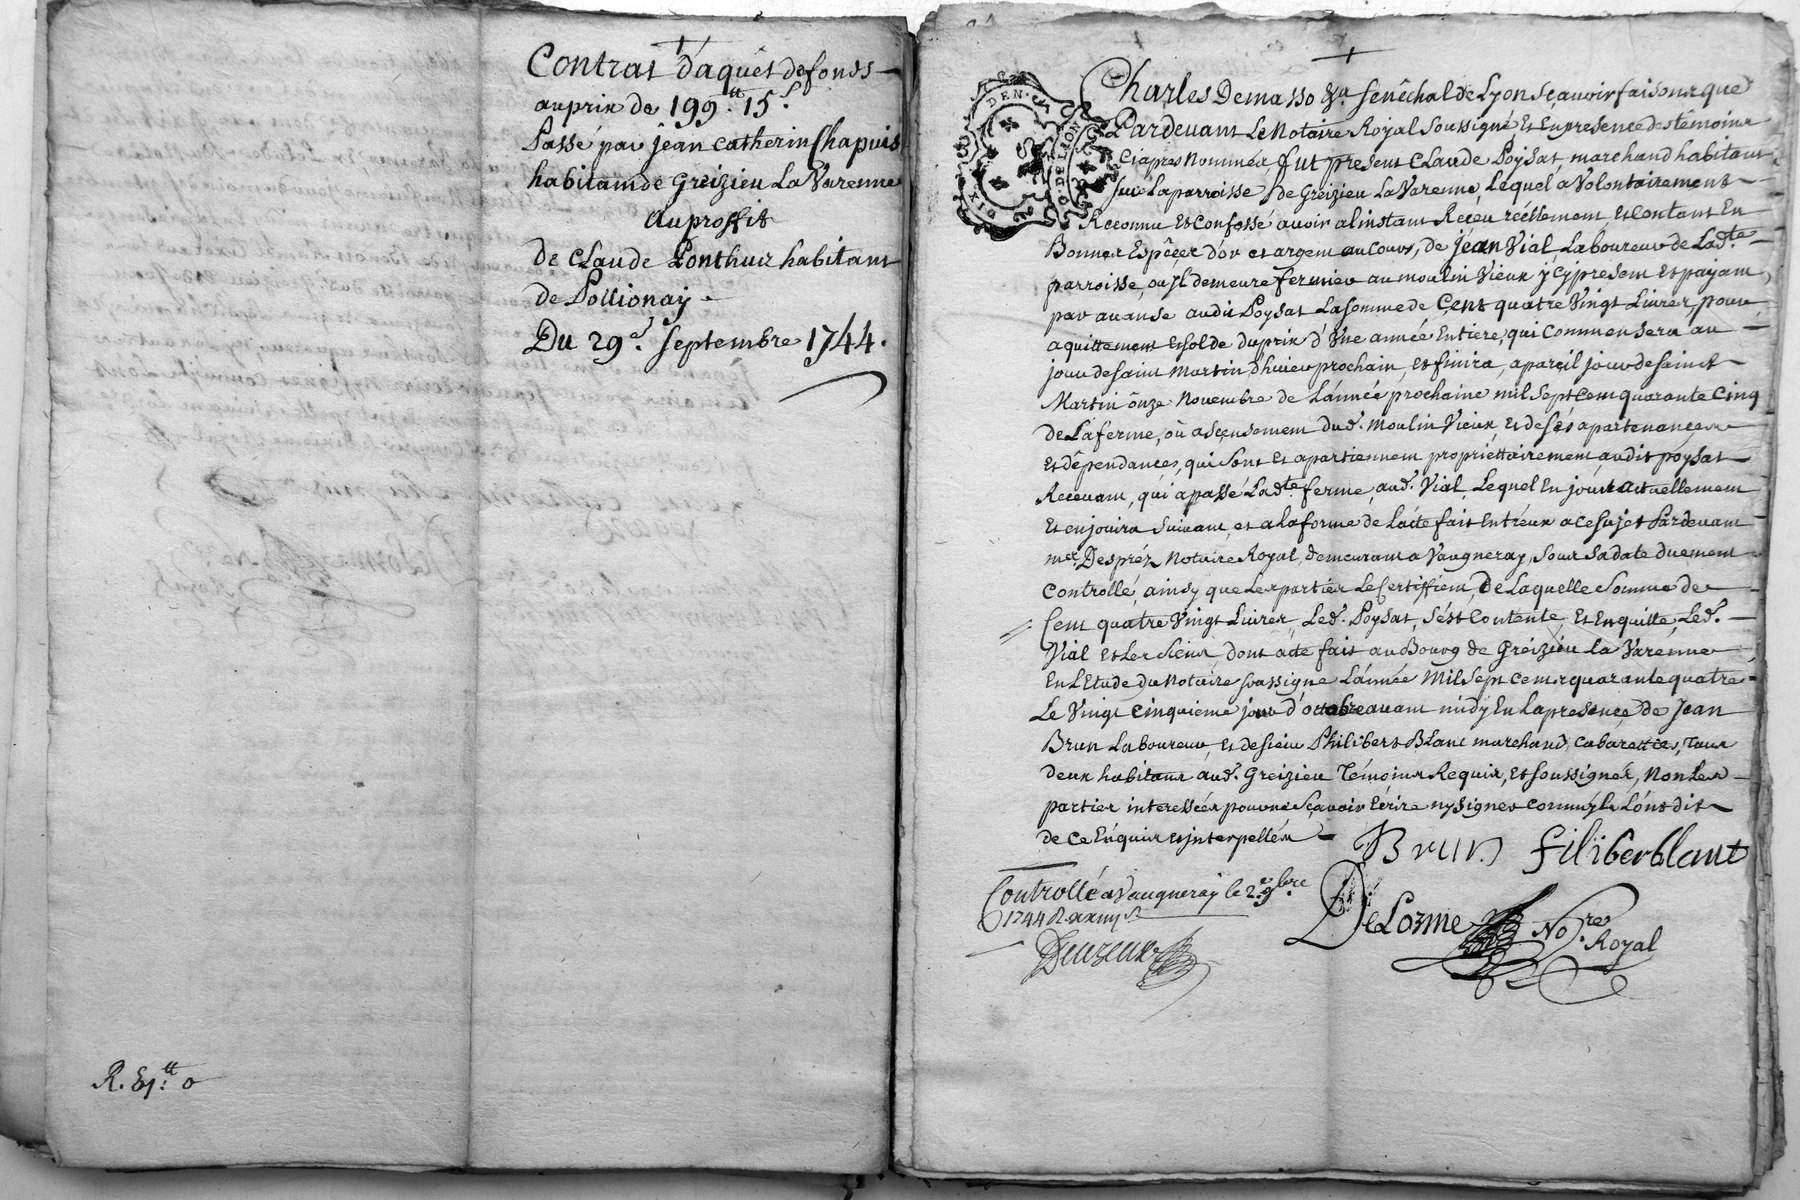 Contrat d'aquêt de fonds
au prix de 199.tt 15.s
Passé par jean catherin Chapuis
habitain de Greizieu La Varenne
au proffit
de Claude Ponthus habitant
de Pollionay.
Du 29e. septembre 1744.
R. 51:tt 0
DIX DEN.
G. DE LION
Charles Demasso &a Senêchal de Lyon sçavoir faisons que
Pardevant Le Notaire Royal Soussigné Et En presence des têmoins
Ciapres Nommés, fut present Claude Poysat, marchand habitant
sur La parroisse de Greizieu La Varenne, Lequel a Volontairement
Reconnu Et Confessé avoir a linstant Reçeu réellement Et Contant En
Bonnes Espêçes d'or et argent au Cours, de jéan Vial Laboureur de Lad.te
parroisse, ou jl demeure fermier au moulin Vieux, jcy present Et payant,
par avanse audit Poysat La somme de Cent quatre Vingt Livres, pour
aquittement Et solde du prix d'Une année Entiere, qui Commensera au
jour de saint Martin d'hiver prochain, et finira, a pareil jour de saint
Martin ônze Novembre de L'année prochaine mil sept cent quarante Cinq
de La ferme, où asçensement dud. Moulin Vieux, et de sés apartenançes
Et dêpendances, qui sont Et apartiennent propriéttairement, audit poysat
Recevant, qui a passé Lad.te ferme, aud. Vial, Lequel En jouit actuellement
Et en jouira Suivant, et a La forme de L'acte fait Entréux a ce sujet Pardevant
me. Desprèz Notaire Royal, demeurant a Vaugneray, sous sa date duement
Controllé, ainsy que Les parties Le Certiffient, De Laquelle Somme de
Cent quatre Vingt Livres, Led. Poysat, s'ést Contente, Et En quitte, Led.
Vial et Les Siens, dont acte fait au Bourg de Gréizieu La Varenne
En L'Etude du Notaire soussigne L'année Mil Sept Cents quarante quatre
Le Vingt Cinquieme jour d'octobre avant midy En La presence de Jean
Brun Laboureur, Et de sieur Philibert Blanc marchand, Cabarettier, Tous
deux habitans aud. Greizieu Témoins Requis, Et soussignés, Non Les
parties interessées pour ne Sçavoir Ecrire ny signer comm'jls L'ont dit
de ce Enquis et jnterpellés
Brun filiberblanc
Controllé a Vaugneray le 2e. 9bre
1744
DeLorme No.re
Royal